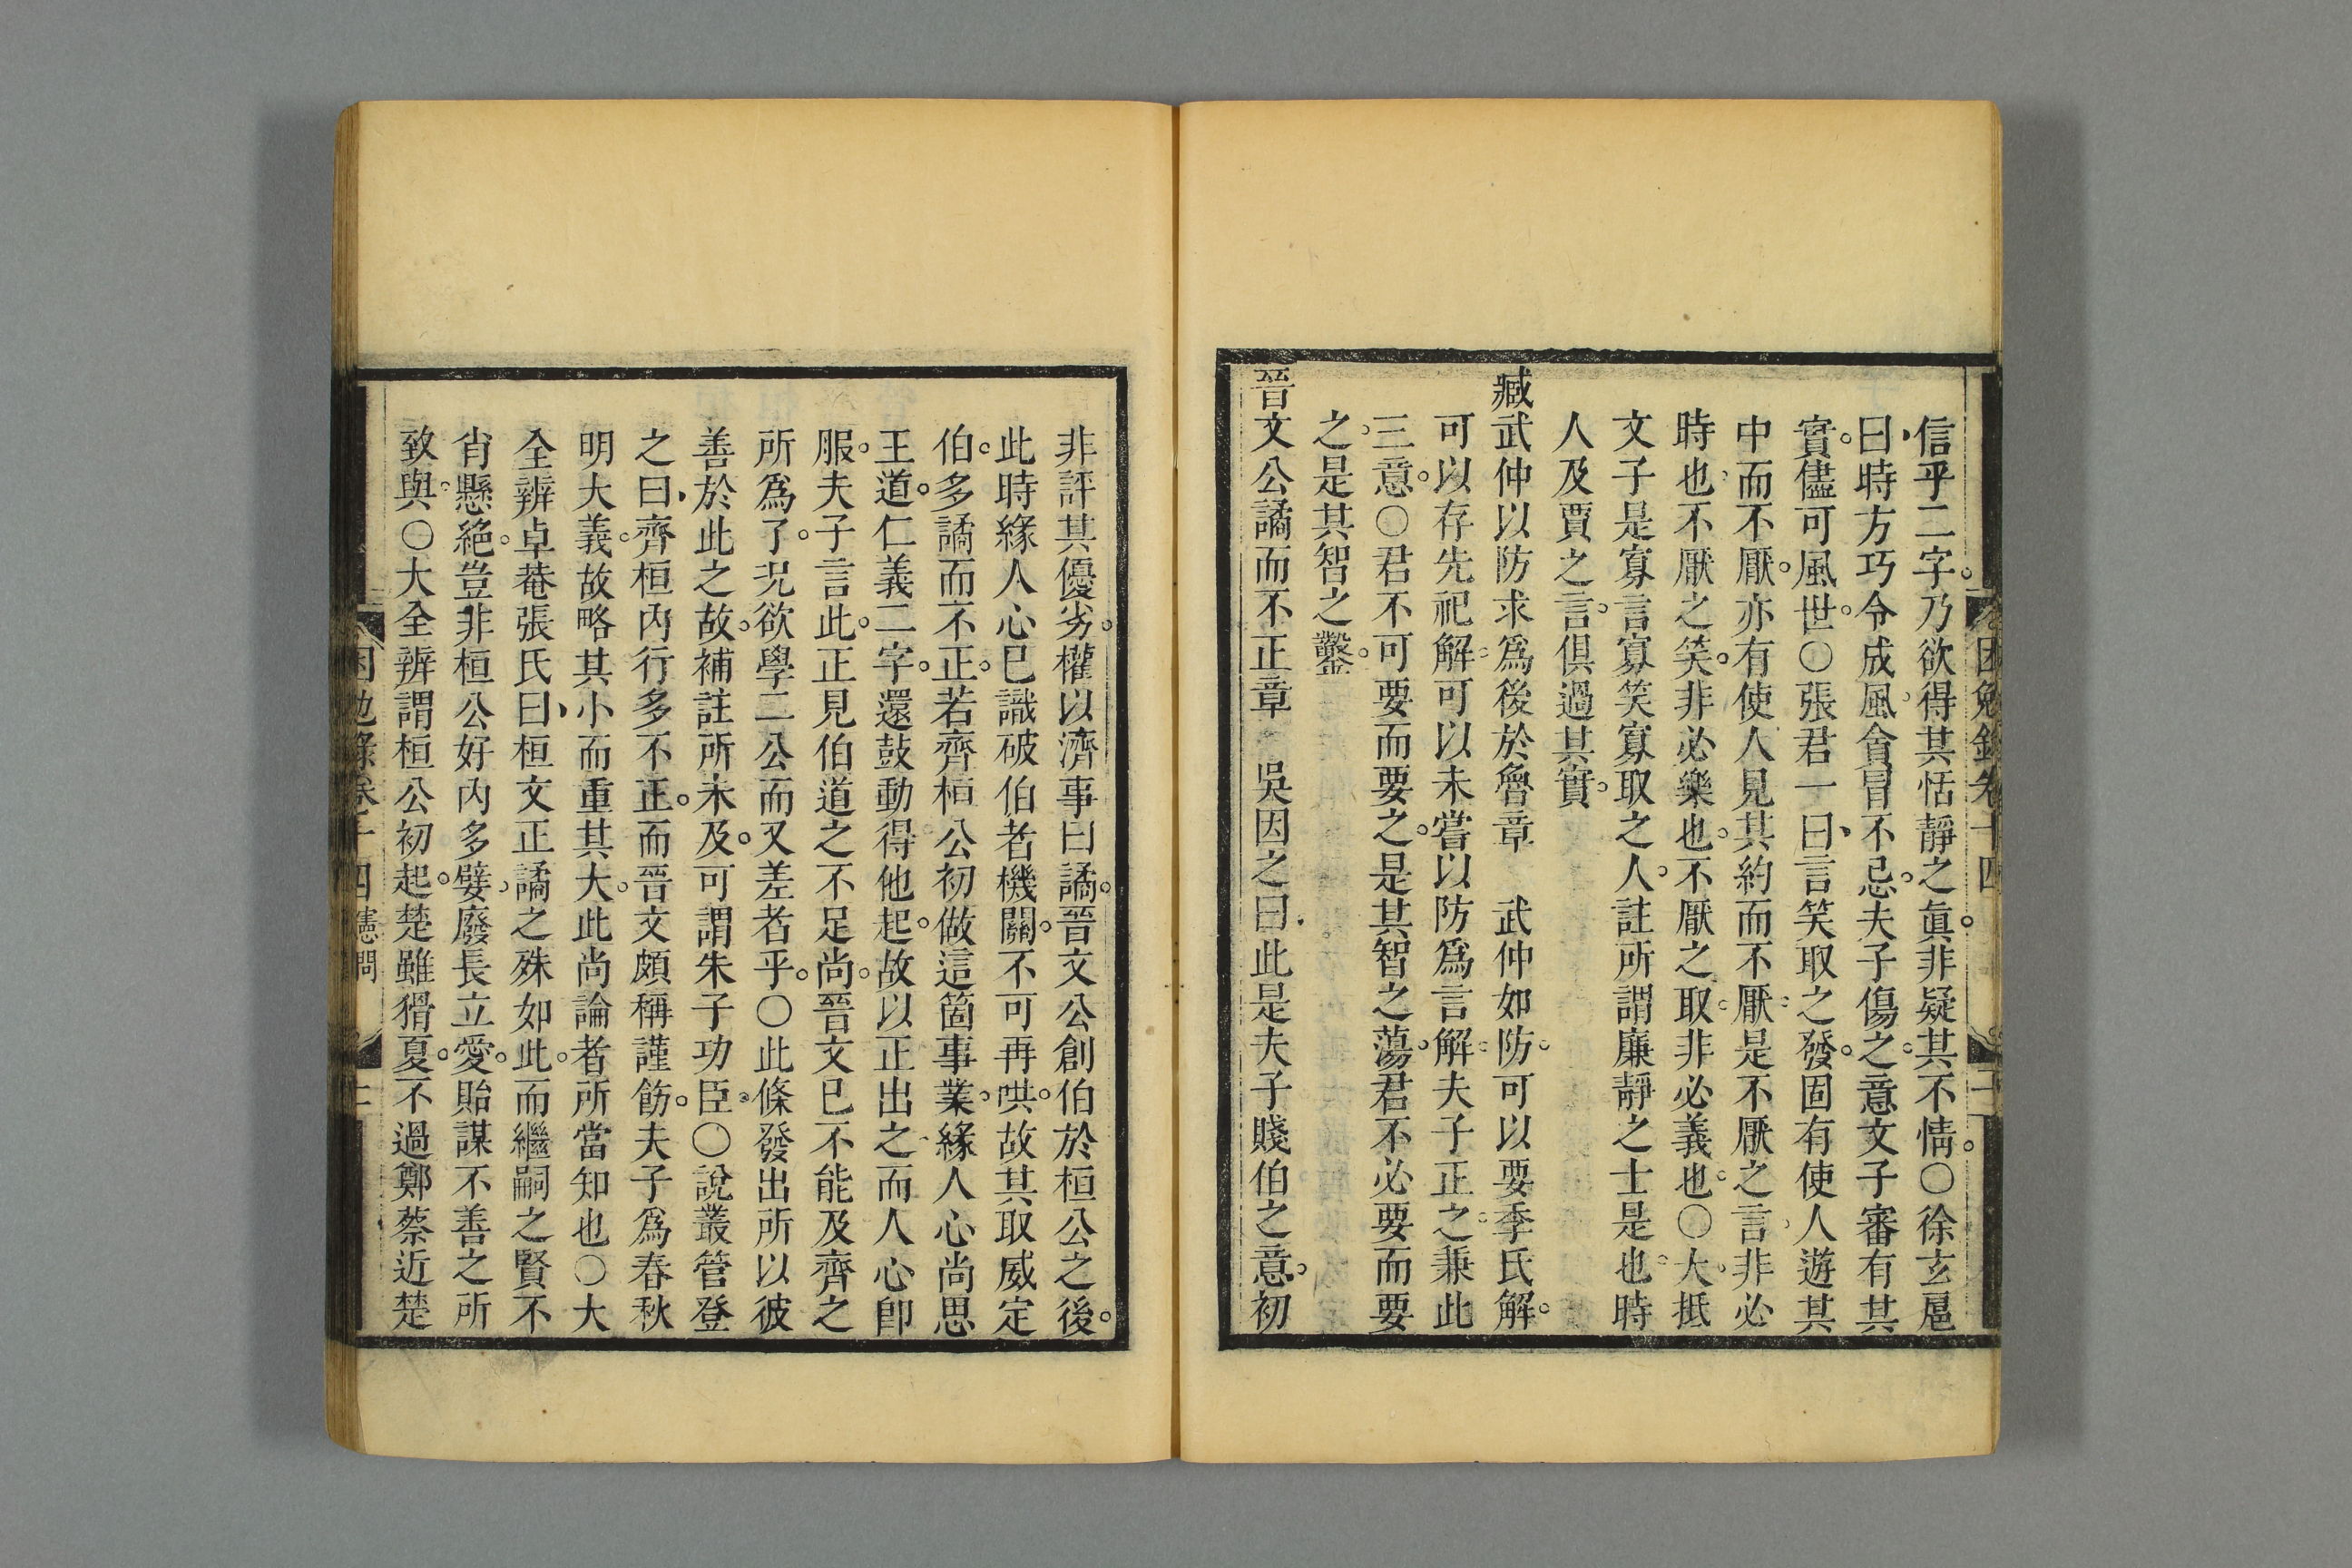 信乎二字。乃欲得其恬靜之眞。非疑其不情。○徐玄扈
曰、時方巧令成風。貪冒不忌。夫子傷之。意文子審有其
實。儘可風世。○張君一曰、言笑取之發。固有使人遊其
中而不厭。亦有使人見其約而不厭。是不厭之言、非必
時也。不厭之笑。非必樂也。不厭之取。非必義也。○大抵
文子是寡言寡笑寡取之人。註所謂廉靜之士是也。時
人及賈之言。俱過其實。
臧武仲以防求爲後於魯章　武仲如防。可以要季氏解。
可以存先祀解。可以未嘗以防爲言解。夫子正之。兼此
三意。○君不可要而要之。是其智之蕩。君不必要而要
之。是其智之鑿。
晉文公譎而不正章　吳因之曰、此是夫子賤伯之意。初
非評其優劣。權以濟事曰譎。晉文公創伯於桓公之後。
此時緣人心已識破伯者機關。不可再哄。故其取威定
伯。多譎而不正。若齊桓公初做這箇事業。緣人心尚思
王道。仁義二字。還鼓動得他起。故以正出之而人心卽
服。夫子言此。正見伯道之不足尚。晉文已不能及齊之
所爲了。況欲學二公而又差者乎。○此條發出所以彼
善於此之故。補註所未及。可謂朱子功臣。○說叢管登
之曰、齊桓內行多不正。而晉文頗稱謹飭。夫子爲春秋
明大義。故略其小而重其大。此尚論者所當知也○大
全辨卓菴張氏曰、桓文正譎之殊如此。而繼嗣之賢不
肖懸絕。豈非桓公好內多嬖、廢長立愛。貽謀不善之所
致與。○大全辨謂桓公初起。楚雖猾夏。不過鄭蔡近楚
困勉錄卷十四 憲問